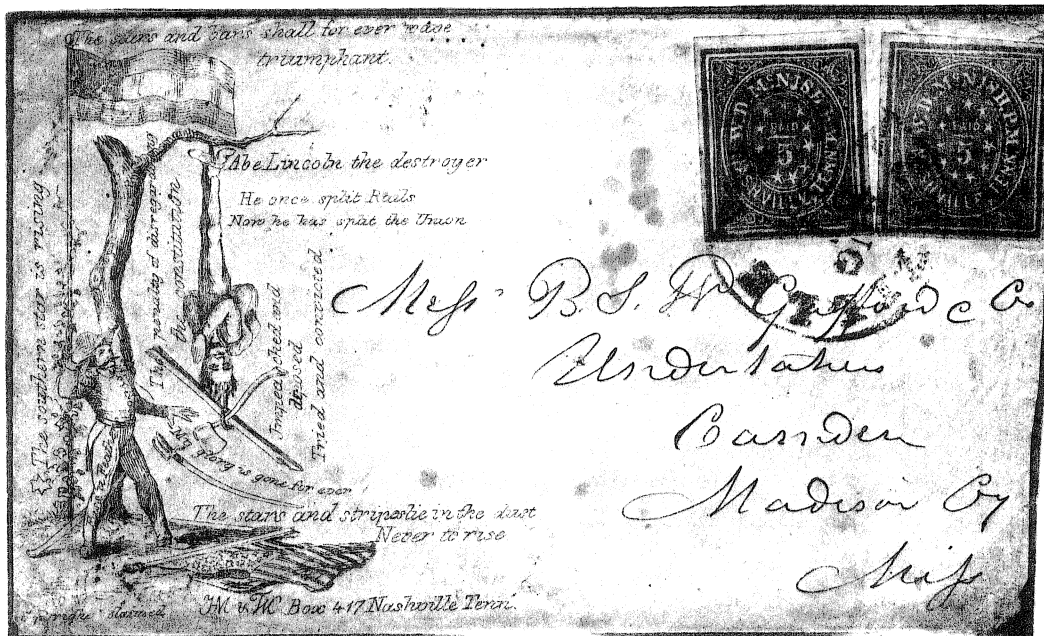 The stars and bars shall for ever wave
triumphant.
Abe Lincoln the destroyer
He once split Rails
Now he has split the Union
The penalty of disregarding
the constitution
The southern star is rising
Impeached and
deposed
Tried and convinced
My glory is gone for ever
The stars and stripes lie in the dust
Never to rise
JM & W. Box 417 Nashville Tenn.
W.D. McNISH P.M.
PAID
5
NASHVILLE TENN
W.D. McNISH P.M.
PAID
5
NASHVILLE TENN
Mess B. S. W. & Co
Undertakers
Camden
Madison Cy
Miss